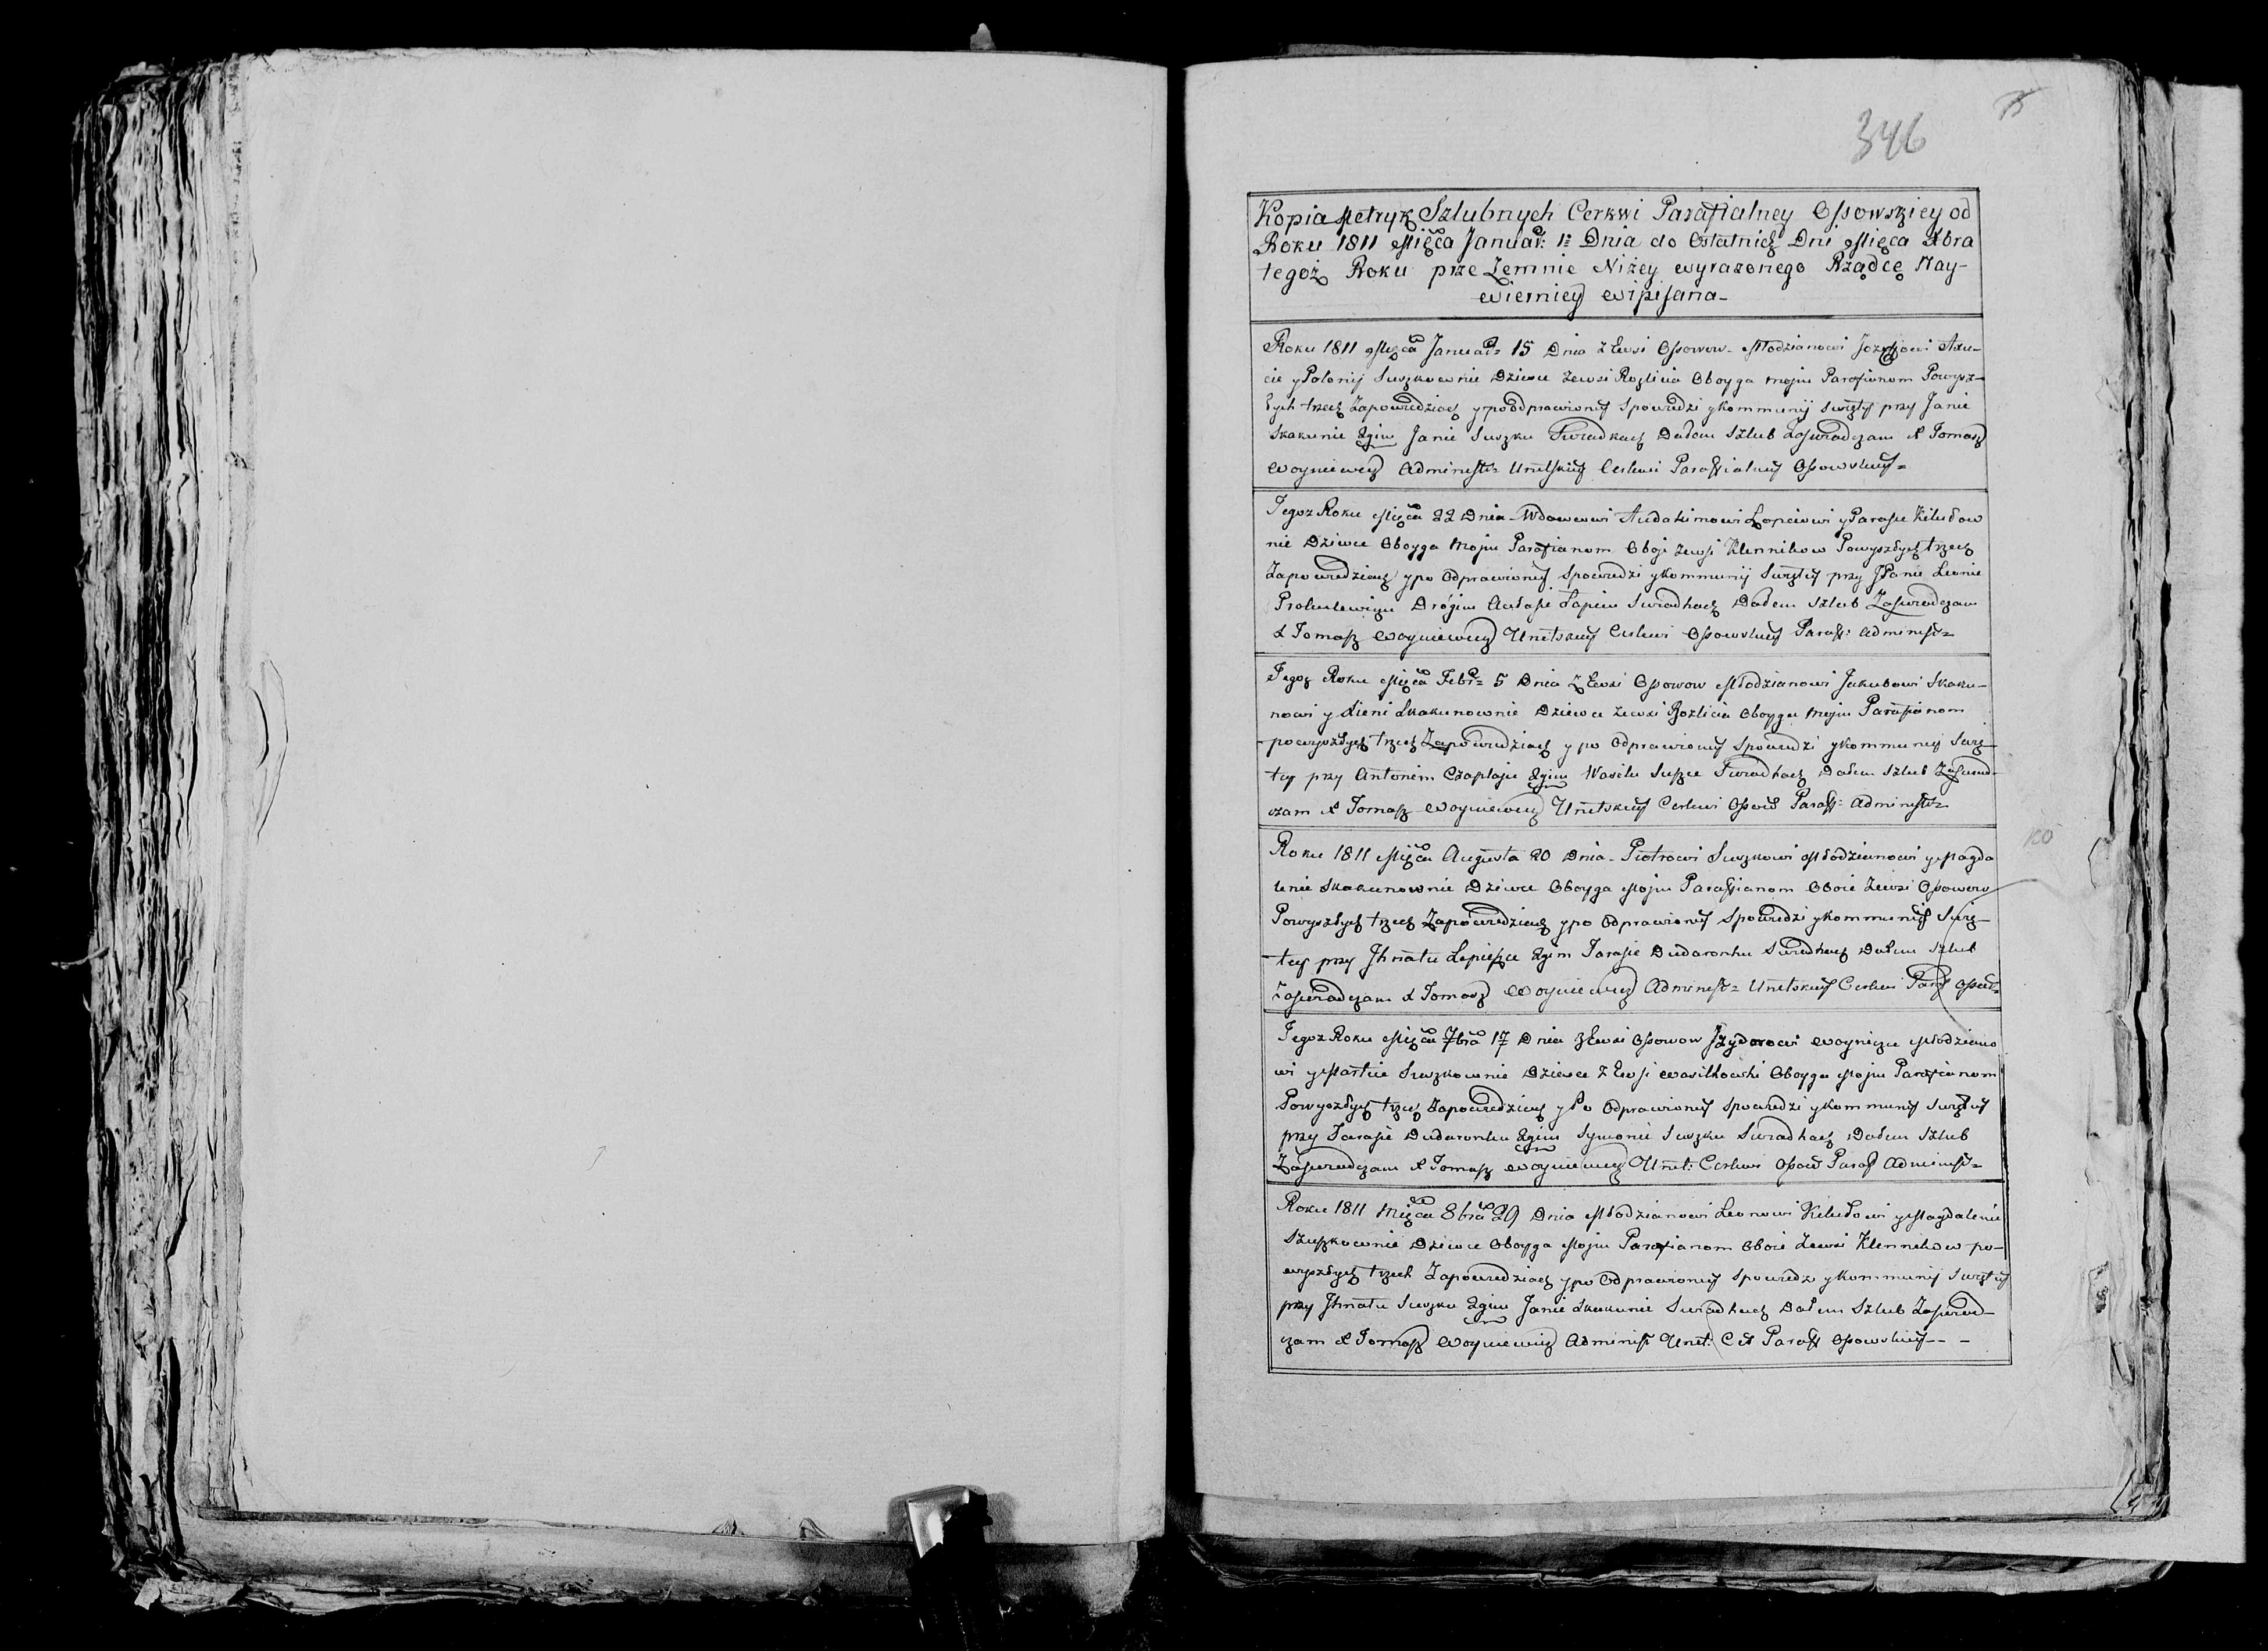 346
Kopia Metryk Szlubnych Cerkwi Parafialney Ossowskiey od
Roku 1811 Mięsca Januar: 1: Dnia do Ostatnich Dni Mięsca Xbra
tegoż Roku prze Zemnie Niżey wyrazonego Rządcę Nay-
wierniey wipisana-
Roku 1811 Mięsca Januar= 15 Dnia z Ewsi Ossowow- Młodzianowi Jozefowi
cie y Polonij Suszkownie Dziewce zewsi Rozlicia Oboyga moju Parafianom Powysz-
łych trzech Zapowiedziach ypoodprawioney Spowiedzi ykommunij Swiętey przy Janie
Skakunie 2gim Janie Suszku Swiadkach Dałem Szlub Zaswiadczam X Tomasz
Woyniewicz Administ= Unitskiey Cerkwi Paraffialney Ossowskiey=
Tegoz Roku Mięsca 22 Dnia- Wdowcowi Audakimowi Łopciowi y Parasce Kiludow
nie Dziewce Oboyga Moju Parafianom Oboje zewsi Klennikow Powyszłych trzech
Zapowiedziach ypo Odprawioney Spowiedzi ykommunij Swiętey przy JPanie Leonie
Drógim Łapciu Swiadkach Dałem Szlub Zaswiadczam
X Tomasz Woyniewicz Unitskiey Cerkwi Ossowskiey Paraff: Administ=
Tegoz Roku Mięsca Febr= 5 Dnia Z Ewsi Ossowow Młodzianowi Jakubowi Skaku-
nowi y Skakunownie Dziewce zewsi Rozlicia Oboyga Moju Parafianom
powyszłych trzech Zapowiedziach y po Odprawioney Spowiedzi ykommunij Swię-
tey przy Antonim Czaplaju 2gim Wasilu Suszce Swiadkach Dałem Szlub Zaswiad-
czam X Tomasz Woyniewicz Unitskiey Cerkwi Ossow Paraff: Administ=
Roku 1811 Mięsca Augusta 20 Dnia- Piotrowi Suszkowi Młodzianowi y Magda
lenie Skakunownie Dziewce Oboyga Moju Paraffianom Oboie Zewsi Ossowow
Powyszłych trzech Zapowiedziach ypo Odprawioney Spowiedzi ykommunij Swię-
tey przy Jhnatu Łapieszce 2gim Tarasie Dudaronku Swiadkach Dałem Szlub
Zaswiadczam X Tomasz Woyniewicz Administ= Unitskiey Cerkwi Paraf Ossow=
Tegoz Roku Mięsca 7bra 17 Dnia zEwsi Ossowow Jzydorowi Woyniczu Młodziano
wi y Martcie Suszkownie Dziewce z Ewsi Wasilkowki Oboyga Moju Parafianom
Powyszłych trzech Zapowiedziach y Po Odprawioney Spowiedzi ykommunij Swiętey
przy Tarasie Dudaronku 2gim Symonie Suszku Swiadkach Dałem Szlub
Zaswiadczam X Tomasz Woyniewicz Unit: Cerkwi Ossow Paraf Administ=
Roku 1811 Mięsca 8bra 29 Dnia Młodzianowi Leonowi Kiludowi y Magdalenie
Szuszkownie Dziewce Oboyga Moju Parafianom Oboie Zewsi Klennikow po-
wyszłych trzech Zapowiedziach ypo Odprawioney Spowiedz ykommunij Swiętey
przy Jhnatu Suszku 2gim Janie Skakunie Swiadkach Dałem Szlub Zaswiad-
czam X Tomasz Woyniewicz Administ Unit: Cer Paraff Ossowskiey---